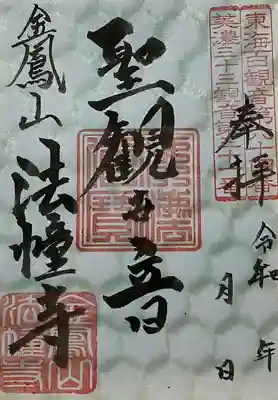 東海百観音第
美濃三十三観音第
奉拝
令和 年
月 日
聖観世音
佛法僧寶
金鳳山
法幢寺
金鳳山
法幢寺